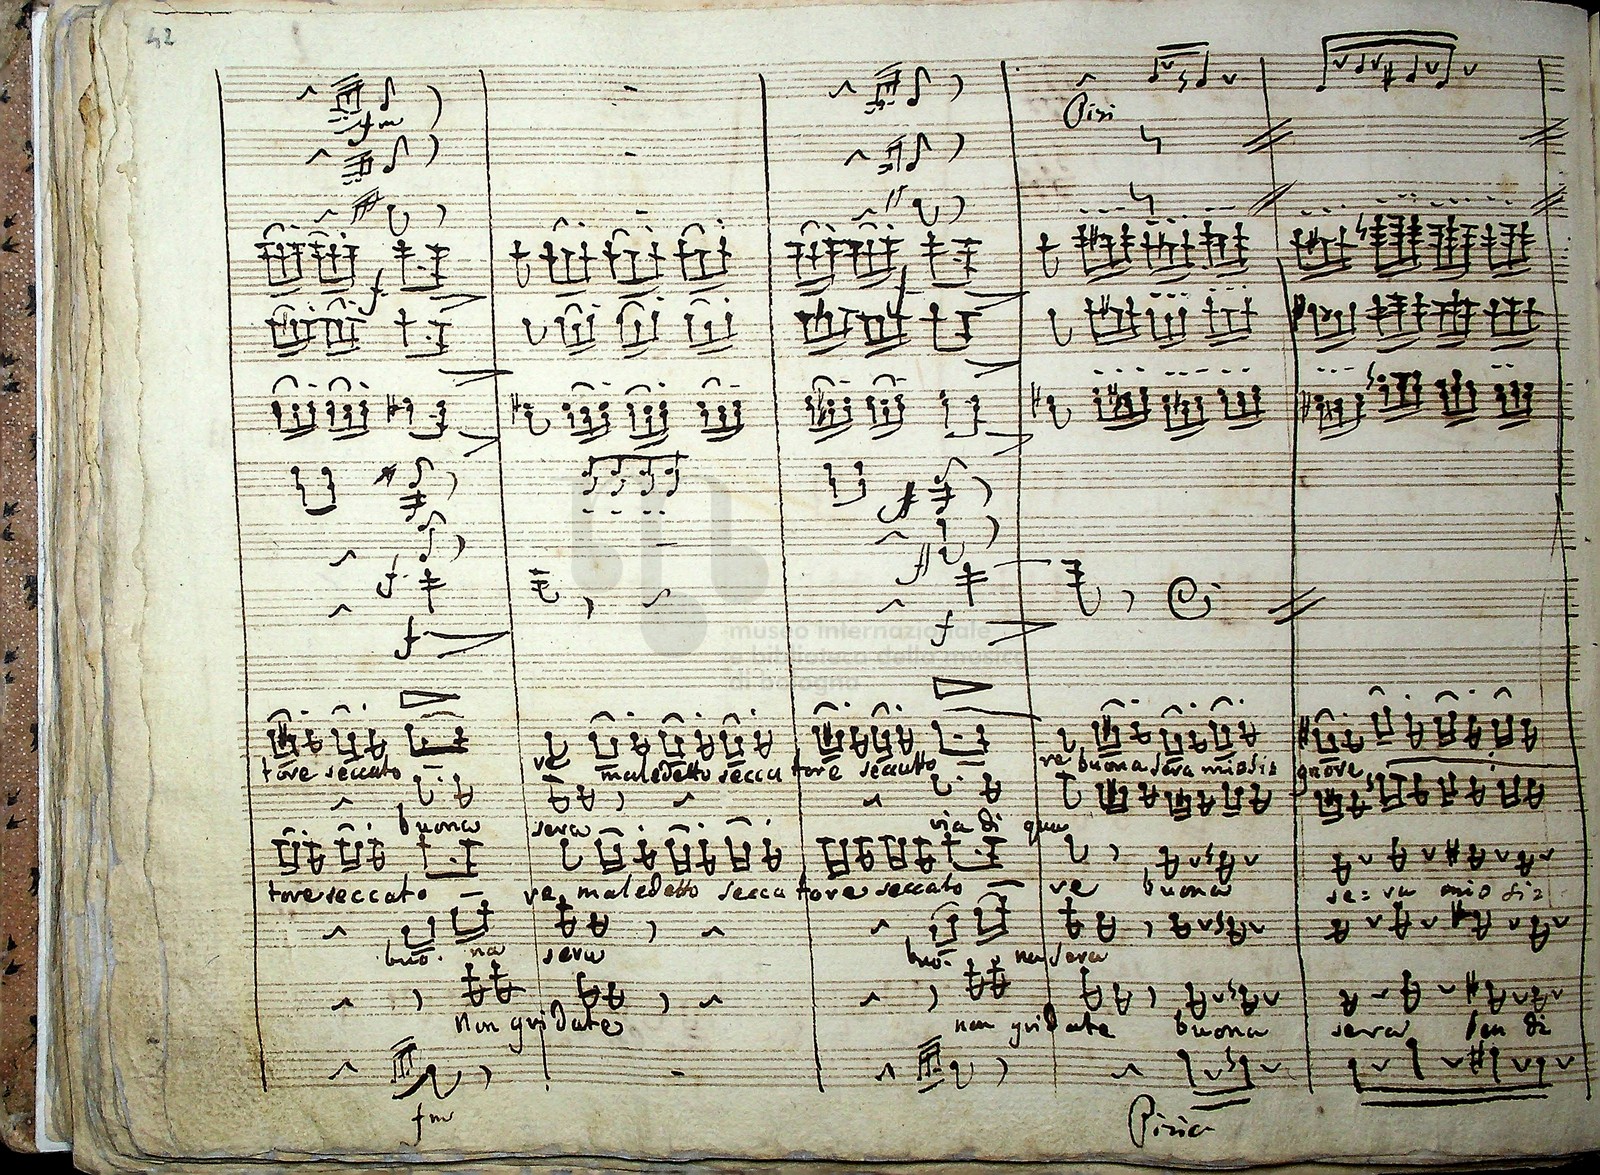 42
fm
Pizi
f
f
f f
f f
museo internazionale
e biblioteca della musica
di bologna
tore seccato ve maledetto secca tore seccato re buona sera mio si= gnore
buona sera via di qua
tore seccato ve maledetto secca tore seccato ve buona se=ra mio si=
buo. na sera buo. na sera
non gridate non gridate buona sera ben di
fm